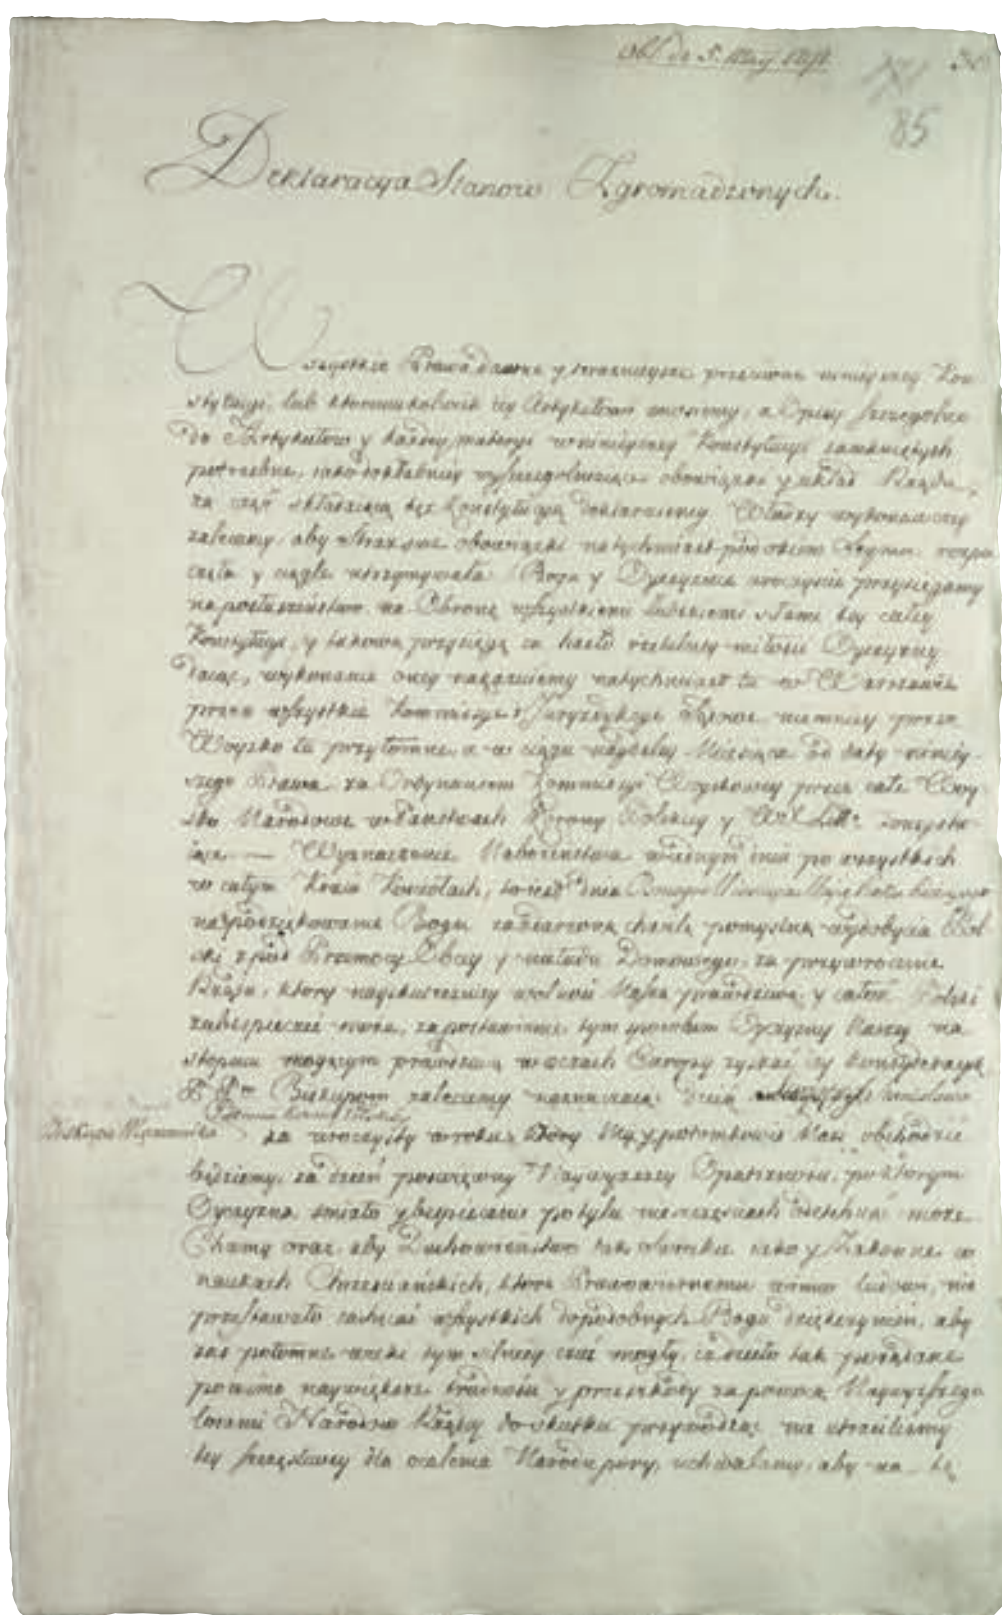 Obl. de 5. Maij 1791.
85
Deklaracya Stanow Zgromadzonych.
Wszystkie Prawa dawne y teraznieysze przeciwne ninieyszey Kon-
stytucyi, lub ktoremukolwiek iey Artykułowi znosiemy, a Opisy szczegolne
do Artykułow y każdey materyi w ninieyszey Konstytucyi zamkniętych
potrzebne, iako dokładniey wyszczegolniaiące obowiązki y układ Rządu,
za część składaiącą tęż Konstytucyą deklaruiemy. Władzy wykonawczey
zalecamy, aby Straż swe obowiązki natychmiast pod okiem Seymu rozpo-
częła y ciągle utrzymywała. Bogu y Oyczyznie uroczyście przysięgamy
na posłuszeństwo na Obronę wszystkiemi ludzkiemi siłami tey całey
Konstytucyi, y takową przysięgę za hasło rzetelney miłości Oyczyzny
maiąc, wykonanie oney nakazuiemy natychmiast tu w Warszawie
przez wszystkie Kommissye y Juryzdykcye Sądowe niemniey przez
Woysko tu przytomne, a w ciągu naydaley Miesiąca od daty ninieyszego
szego Prawa za Ordynansem Kommissyi Woyskowey przez całe Woy-
sko Narodowe w Państwach Korony Polskiey y W. X. Litt:
— Wyznaczenie Nabożeństwa w iednym dniu po wszystkich
w całym Kraiu Kościołach, to iest dnia
na podziękowanie Bogu za zdarzoną chwilę pomyślną wydobycia Pol-
ski z pod Przemocy Obcey y nieładu Domowego, za przywrocenie
Rządu, ktory nayskuteczniey wolność Naszą prawdziwą y całość Polski
zabespieczyć może, za postawienie tym sposobem Oyczyzny Naszey na
stopniu mogącym prawdziwą w oczach Europy zyskać iey konsyderacyą
Biskupom zalecamy naznaczaiąc dzień Stanisława
Biskupa Męczennika
Patrona Korony Polskiey
za uroczysty w roku, ktory My y potomkowie Nasi obchodzić
będziemy, za dzień poswięcony Naywyższey Opatrzności, po ktorym
Oyczyzna śmiało y bespiecznie po tylu nieszczęściach odetchnąć może.
Chcemy oraz, aby Duchowieństwo tak Świeckie iako y Zakonne w
naukach Chrześciańskich, ktore Prawowiernemu winno Ludowi, nie
przestawało zachęcać wszystkich do podobnych Bogu dziękczynień, aby
zaś potomne wieki tym silniey czuć mogły, iż dzieło tak pożądane
pomimo naywiększe trudności y przeszkody za pomocą Naywyższego
losami Narodow Rządcy do skutku przywodząc, nie utraciliśmy
tey szczęśliwey dla ocalenia Narodu pory, uchwalamy, aby na tę